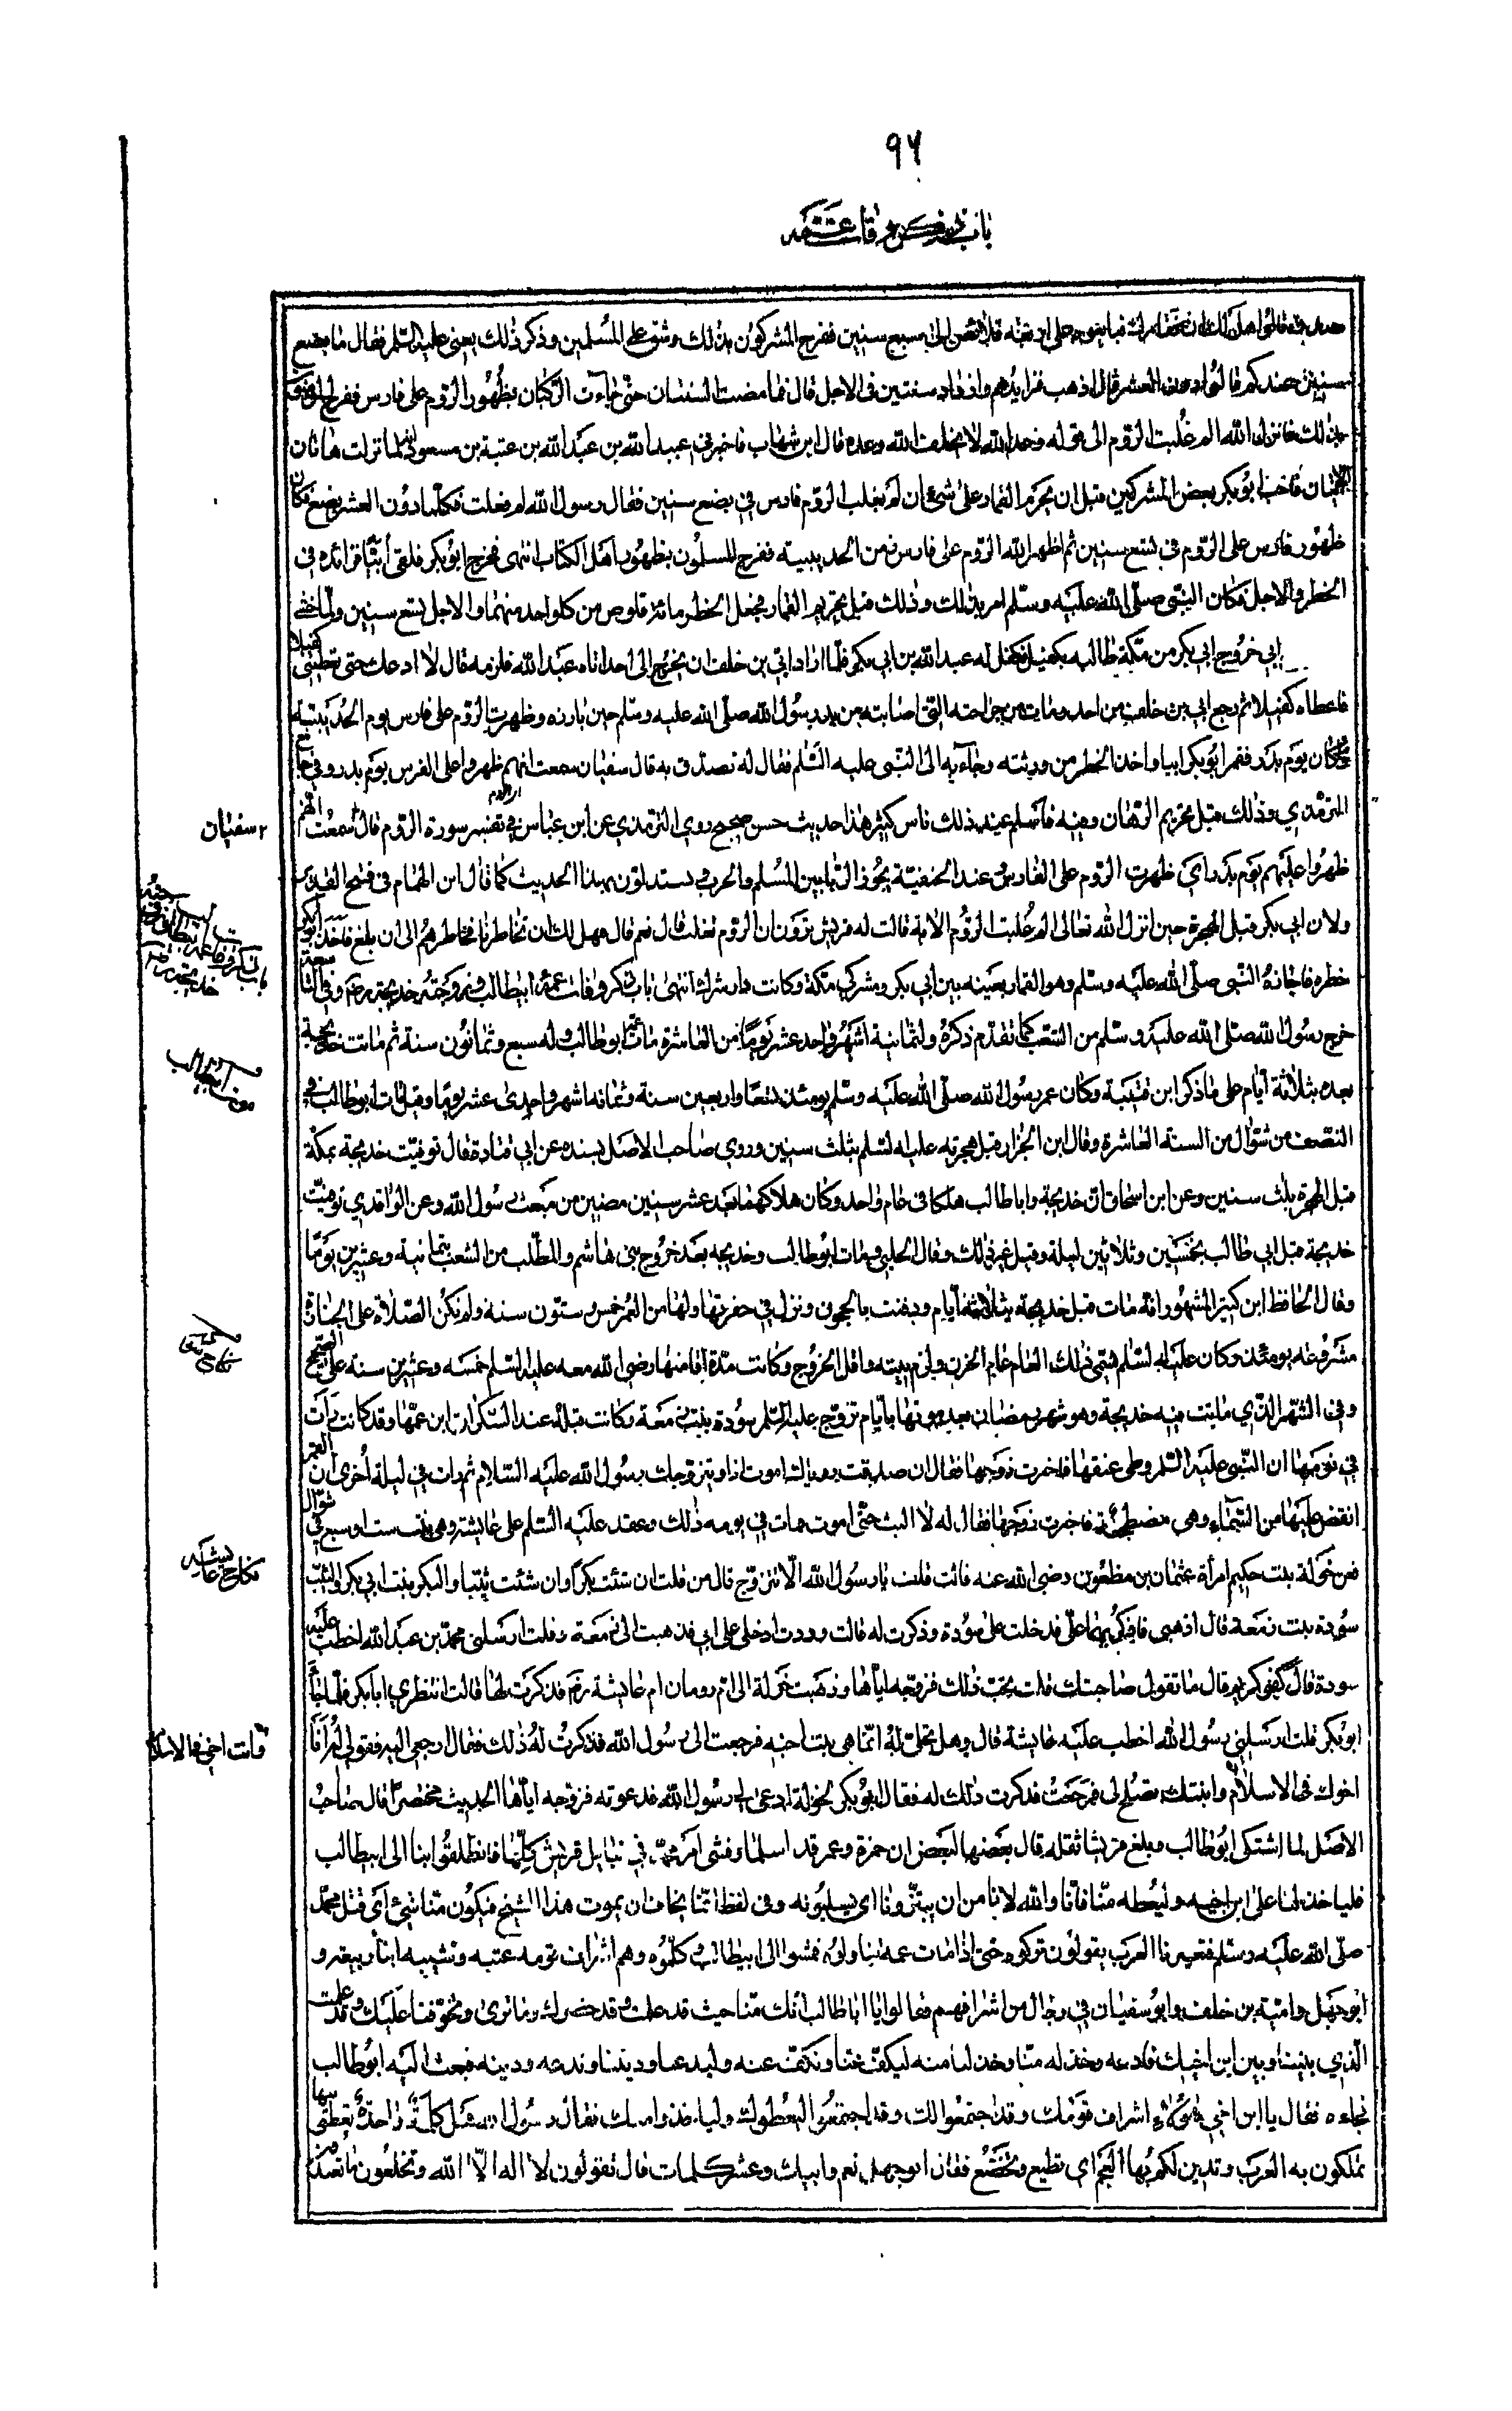 ٩٦
باب ذكر وفات عمه
قالوا هل لك ان نخاطرك فبايعوه على اربعة قلائص الى سبع سنين ففرح المشركون بذلك وشق على المسلمين وذكر ذلك يعني عليه السلم فقال ما بضع
سنين عندكم قالوا دون العشر قال اذهب فزايدهم وازداد سنتين في الاجل قال فما مضت السنتان حتى جاءت الركبان بظهور الروم على فارس ففرح المؤمنون
بذلك فانزل الله الم غلبت الروم الى قوله وعد الله لا يخلف الله وعده قال ابن شهاب فاخبرني عبيد الله بن عبد الله بن عتبة بن مسعود قال لما نزلت هاتان
الايتان ناحب ابو بكر بعض المشركين قبل ان يحرم القمار على شئ ان لم يغلب الروم فارس في بضع سنين فقال رسول الله لم فعلت فكلما دون العشر بضع فكان
ظهور فارس على الروم في تسع سنين ثم اظهر الله الروم على فارس زمن الحديبية ففرح المسلمون بظهور اهل الكتاب انتهى فخرج ابو بكر فلقي أبيا فزائده في
الخطر والاجل فكان النبي صلى الله عليه وسلم امر بذلك وذلك قبل تحريم القمار فجعل الخطر مائة قلوص من كل واحد منهما والاجل تسع سنين ولما خشي
ابي خروج ابي بكر من مكة طالبه بكفيل فكفل له عبد الله بن ابي بكر فلما اراد ابي بن خلف ان يخرج الى احد اتاه عبد الله فلزمه قال لا ادعك حتى تعطيني كفيلا
فاعطاه كفيلا ثم رجع ابي بن خلف من احد ومات من جراحته التي اصابته من يد رسول الله صلى الله عليه وسلم حين بارزه وظهرت الروم على فارس يوم الحديبية
كان يوم بدر فقمر ابو بكر ابيا واخذ الخطر من ورثته وجاء به الى النبي عليه السلم فقال له تصدق به قال سفيان سمعت انهم ظهروا على الفرس يوم بدر وفي جامع
الترمذي وذلك قبل تحريم الرهان وفيه فاسلم عند ذلك ناس كثير هذا حديث حسن صحيح روى الترمذي عن ابن عباس في تفسير سورة الروم قال سمعت انهم
ظهروا عليهم يوم بدر اي ظهرت الروم على الفارس وعند الحنفية يجوز الربا بين المسلم والحربي ويستدلون بهذا الحديث كما قال ابن الهمام في فتح القدير
ولان ابي بكر قبل الهجرة حين انزل الله تعالى الم غلبت الروم الاية قالت له قريش ترون ان الروم تغلب قال نعم قال فهل لك ان تخاطرنا فخاطرهم الى ان بلغ فاخذ ابو بكر
خطره فاجازه النبي صلى الله عليه وسلم وهو القمار بعينه بين ابي بكر ومشركي مكة وكانت دار شرك انتهى باب ذكر وفات عمه ابيطالب وزوجته خديجة رضه وفي الثامنة
خرج رسول الله صلى الله عليه وسلم من الشعب كما تقدم ذكره ولثمانية اشهر واحد عشر يوما من العاشرة مات عمه ابو طالب وله سبع وثمانون سنة ثم ماتت خديجة
بعده بثلاثة ايام على ما ذكر ابن قتيبة وكان عمر رسول الله صلى الله عليه وسلم يومئذ تسعا واربعين سنة وثمانية اشهر واحدى عشر يوما وقيل مات ابو طالب في
النصف من شوال من السنة العاشرة وقال ابن الجزار قبل هجرته عليه السلم بثلث سنين وروى صاحب الاصل بسنده عن ابي قتادة قال توفيت خديجة بمكة
قبل الهجرة بثلث سنين وعن ابن اسحاق ان خديجة وابا طالب هلكا في عام واحد وكان هلاكهما بعد عشر سنين مضين من مبعث رسول الله وعن الواقدي توفيت
خديجة قبل ابي طالب بخمس وثلاثين ليلة وقيل غير ذلك وقال الحلبي ومات ابو طالب وخديجة بعد خروج بني هاشم والمطلب من الشعب بثمانية وعشرين يوما
وقال الحافظ ابن كثير المشهور انه مات قبل خديجة بثلاثة ايام ودفنت بالحجون ونزل في حفرتها ولها من العمر خمس وستون سنة ولم تكن الصلاة على الجنازة
مشروعة يومئذ وكان عليه السلم يسمي ذلك العام عام الحزن ولزم بيته واقل الخروج وكانت مدة اقامتها رضي الله معه عليه السلم خمسة وعشرين سنة على الصحيح
وفي الشهر الذي ماتت فيه خديجة وهو شهر رمضان بعد موتها بايام تزوج عليه السلم سودة بنت زمعة وكانت قبله عند السكران ابن عمها وقد كانت رات
في نومها ان النبي عليه السلم وطى عنقها فاخبرت زوجها فقال ان صدقت رؤياك اموت انا ويتزوجك رسول الله عليه السلام ثم رات في ليلة اخرى ان القمر
انقض عليها من السماء وهي مضطجعة فاخبرت زوجها فقال له لا البث حتى اموت فمات في يومه ذلك وعقد عليه السلم على عايشة وهي بنت ست او سبع في شوال
فعن خولة بنت حكيم امرأة عثمان بن مظعون رضي الله عنه قالت قلت يا رسول الله الا تتزوج قال من قلت ان شئت بكرا وان شئت ثيبا والبكر بنت ابي بكر والثيب
سودة بنت زمعة قال اذهبي فاذكريهما علي فدخلت على سودة وذكرت له قالت وددت ادخلي على ابي فذهبت الى زمعة وقلت ارسلني محمد بن عبد الله اخطب عليه
سودة قال كفو كريم قال ما تقول صاحبتك قلت تحب ذلك فزوجه اياها وذهبت خولة الى ام رومان ام عايشة رضه فذكرت لها قالت انتظري ابا بكر فلما جاء
ابو بكر قلت ارسلني رسول الله اخطب عليه عايشة قال وهل تحل له انما هي بنت اخيه فرجعت الى رسول الله فذكرت له ذلك فقال ارجعي اليه فقولي له انا
اخوك في الاسلام وابنتك تصلح لي فرجعت فذكرت ذلك له فقال ابو بكر لخولة ادعي لي رسول الله فدعوته فزوجه اياها الحديث مختصرا قال صاحب
الاصل لما اشتكى ابو طالب وبلغ قريشا ثقله قال بعضها لبعض ان حمزة وعمر قد اسلما وفشى امر محمد في قبايل قريش كلها فانطلقوا بنا الى ابيطالب
فلياخذ لنا على ابن اخيه وليعطه منا فانا والله لا نامن ان يبتزونا اي يسلبونه وفي لفظ اننا نخاف ان يموت هذا الشيخ فيكون منا شئ اي قتل محمد
صلى الله عليه وسلم فتعيرنا العرب يقولون تركوه حتى اذا مات عمه تناولوه فمشوا الى ابيطالب وكلموه وهم اشراف قومه عتبة وشيبة ابنا ربيعة و
ابو جهل وامية بن خلف وابو سفيان في رجال من اشرافهم فقالوا يا ابا طالب انك منا حيث قد علمت وقد حضرك ما ترى وتخوفنا عليك وقد علمت
الذي بيننا وبين ابن اخيك فادعه وخذ له منا وخذ لنا منه ليكف عنا ونكف عنه وليدعنا وديننا وندعه ودينه فبعث اليه ابو طالب
فجاءه فقال يا ابن اخي هؤلاء اشراف قومك وقد اجتمعوا لك وقد اجتمعوا ليعطوك ولياخذوا منك فقال رسول الله كلمة واحدة تعطوني بها
تملكون به العرب وتدين لكم بها العجم اي تطيع وتخضع فقال ابو جهل نعم وابيك وعشر كلمات قال تقولون لا اله الا الله وتخلعون ما تعبدون
سفيان
باب ذكر وفات عمه ابيطالب وزوجته خديجة رضه
موت ابيطالب
نكاح سودة
نكاح عايشة
قالت اخي في الاسلام